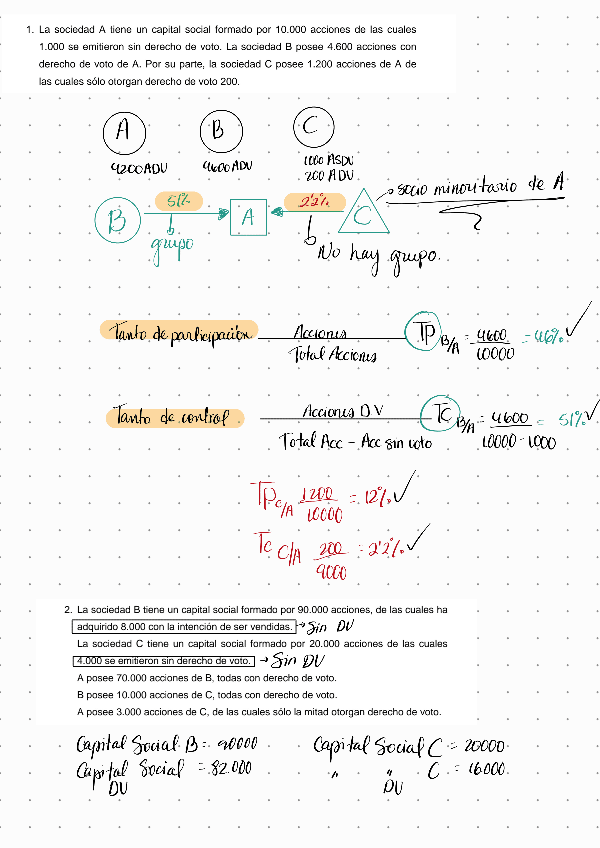 1. La sociedad A tiene un capital social formado por 10.000 acciones de las cuales
1.000 se emitieron sin derecho de voto. La sociedad B posee 4.600 acciones con
derecho de voto de A. Por su parte, la sociedad C posee 1.200 acciones de A de
las cuales sólo otorgan derecho de voto 200.
A B C
4200 ADV 4600 ADV 1000 ASDV
200 ADV
B 51% A 2'2% C socio minoritario de A
grupo No hay grupo.
Tanto de participación Acciones TP B/A = 4600 = 46% ✓
Total Acciones 10000
Tanto de control Acciones DV TC B/A = 4600 = 51% ✓
Total Acc - Acc sin voto 10000 - 1000
TP C/A 1200 = 12% ✓
10000
Tc C/A 200 = 2'2% ✓
9000
2. La sociedad B tiene un capital social formado por 90.000 acciones, de las cuales ha
adquirido 8.000 con la intención de ser vendidas. → Sin DV
La sociedad C tiene un capital social formado por 20.000 acciones de las cuales
4.000 se emitieron sin derecho de voto. → Sin DV
A posee 70.000 acciones de B, todas con derecho de voto.
B posee 10.000 acciones de C, todas con derecho de voto.
A posee 3.000 acciones de C, de las cuales sólo la mitad otorgan derecho de voto.
Capital Social B = 90000 Capital Social C = 20000
Capital Social = 82.000 " " C = 16000
DV DV